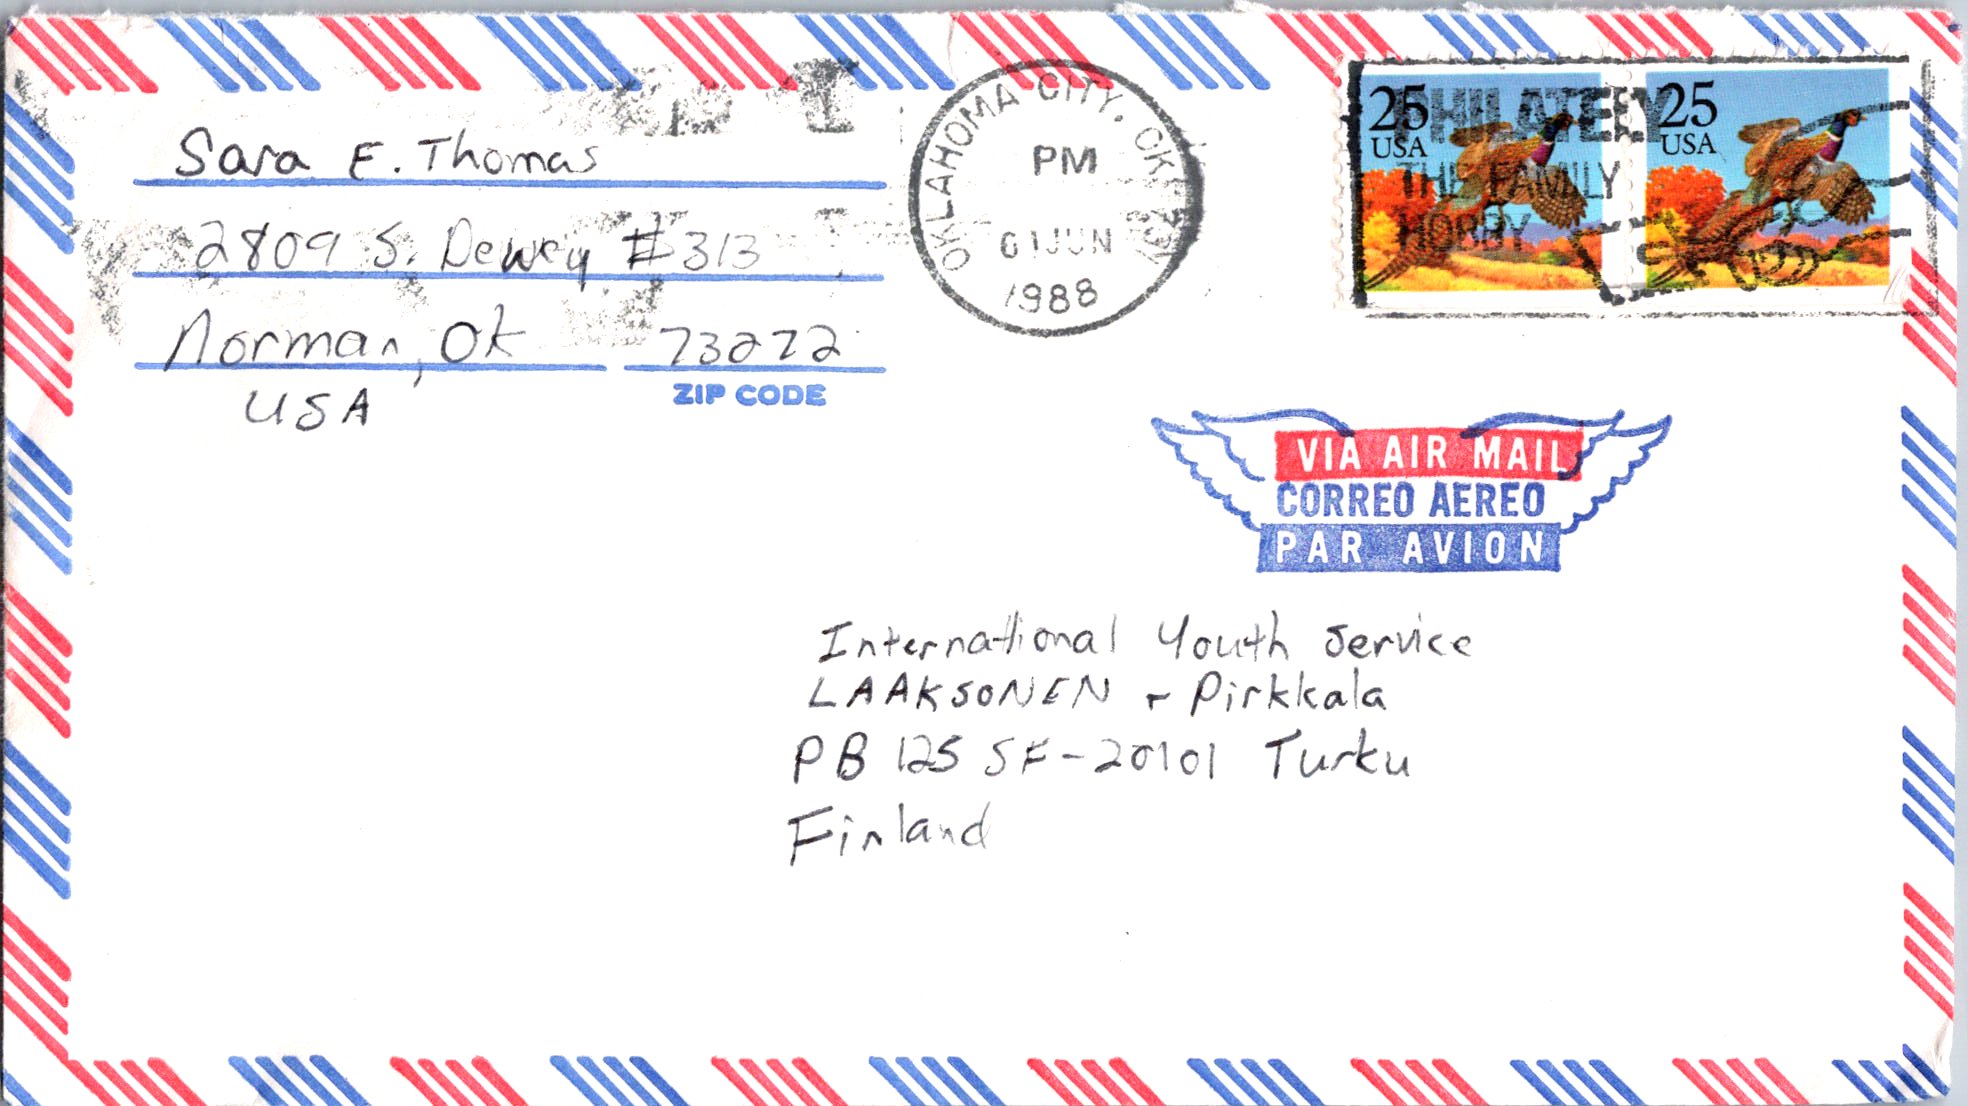 Sara E. Thomas
2809 S. Dewey #313
Norman, OK 73272
ZIP CODE
USA
OKLAHOMA CITY, OK 731
PM
01 JUN
1988
25
USA
25
USA
PHILATELY
THE FAMILY
HOBBY
VIA AIR MAIL
CORREO AEREO
PAR AVION
International Youth Service
LAAKSONEN + Pirkkala
PB 125 SF-20101 Turku
Finland